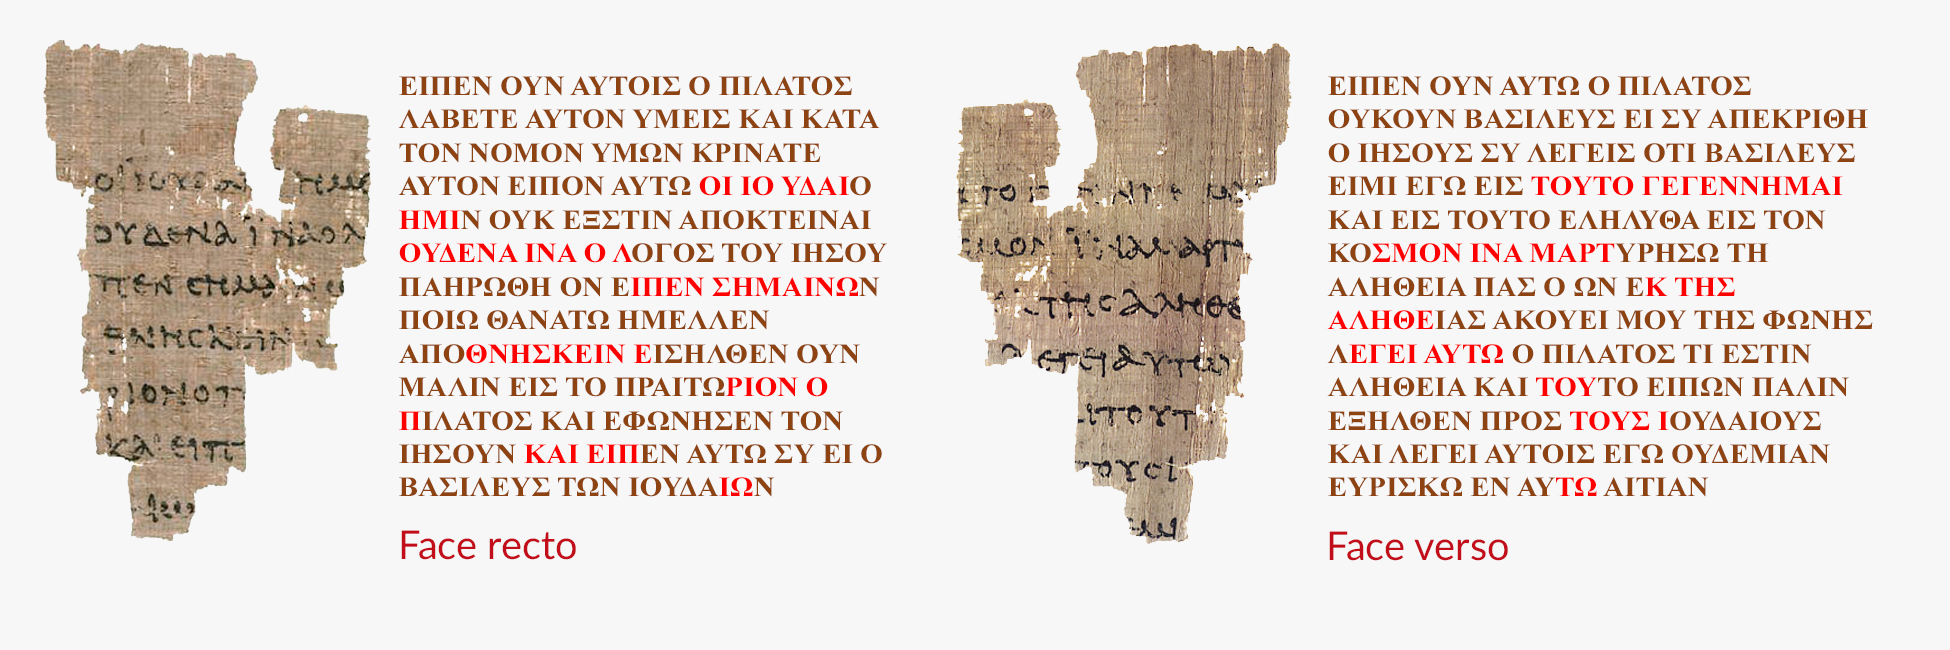 ΟΥΔΕΝΑ ΙΝΑ Ο Λ
ΡΙΟΝ Ο Π
ΚΑΙ ΕΙΠ
ΕΙΠΕΝ ΟΥΝ ΑΥΤΟΙΣ Ο ΠΙΛΑΤΟΣ
ΛΑΒΕΤΕ ΑΥΤΟΝ ΥΜΕΙΣ ΚΑΙ ΚΑΤΑ
ΤΟΝ ΝΟΜΟΝ ΥΜΩΝ ΚΡΙΝΑΤΕ
ΑΥΤΟΝ ΕΙΠΟΝ ΑΥΤΩ ΟΙ ΙΟ ΥΔΑΙΟ
ΗΜΙΝ ΟΥΚ ΕΞΣΤΙΝ ΑΠΟΚΤΕΙΝΑΙ
ΟΥΔΕΝΑ ΙΝΑ Ο ΛΟΓΟΣ ΤΟΥ ΙΗΣΟΥ
ΠΑΗΡΩΘΗ ΟΝ ΕΙΠΕΝ ΣΗΜΑΙΝΩΝ
ΠΟΙΩ ΘΑΝΑΤΩ ΗΜΕΛΛΕΝ
ΑΠΟΘΝΗΣΚΕΙΝ ΕΙΣΗΛΘΕΝ ΟΥΝ
ΜΑΛΙΝ ΕΙΣ ΤΟ ΠΡΑΙΤΩΡΙΟΝ Ο
ΠΙΛΑΤΟΣ ΚΑΙ ΕΦΩΝΗΣΕΝ ΤΟΝ
ΙΗΣΟΥΝ ΚΑΙ ΕΙΠΕΝ ΑΥΤΩ ΣΥ ΕΙ Ο
ΒΑΣΙΛΕΥΣ ΤΩΝ ΙΟΥΔΑΙΩΝ
Face recto
ΤΗC ΑΛΗΘΕ
ΤΟΥCΙ
ΕΙΠΕΝ ΟΥΝ ΑΥΤΩ Ο ΠΙΛΑΤΟΣ
ΟΥΚΟΥΝ ΒΑΣΙΛΕΥΣ ΕΙ ΣΥ ΑΠΕΚΡΙΘΗ
Ο ΙΗΣΟΥΣ ΣΥ ΛΕΓΕΙΣ ΟΤΙ ΒΑΣΙΛΕΥΣ
ΕΙΜΙ ΕΓΩ ΕΙΣ ΤΟΥΤΟ ΓΕΓΕΝΝΗΜΑΙ
ΚΑΙ ΕΙΣ ΤΟΥΤΟ ΕΛΗΛΥΘΑ ΕΙΣ ΤΟΝ
ΚΟΣΜΟΝ ΙΝΑ ΜΑΡΤΥΡΗΣΩ ΤΗ
ΑΛΗΘΕΙΑ ΠΑΣ Ο ΩΝ ΕΚ ΤΗΣ
ΑΛΗΘΕΙΑΣ ΑΚΟΥΕΙ ΜΟΥ ΤΗΣ ΦΩΝΗΣ
ΛΕΓΕΙ ΑΥΤΩ Ο ΠΙΛΑΤΟΣ ΤΙ ΕΣΤΙΝ
ΑΛΗΘΕΙΑ ΚΑΙ ΤΟΥΤΟ ΕΙΠΩΝ ΠΑΛΙΝ
ΕΞΗΛΘΕΝ ΠΡΟΣ ΤΟΥΣ ΙΟΥΔΑΙΟΥΣ
ΚΑΙ ΛΕΓΕΙ ΑΥΤΟΙΣ ΕΓΩ ΟΥΔΕΜΙΑΝ
ΕΥΡΙΣΚΩ ΕΝ ΑΥΤΩ ΑΙΤΙΑΝ
Face verso